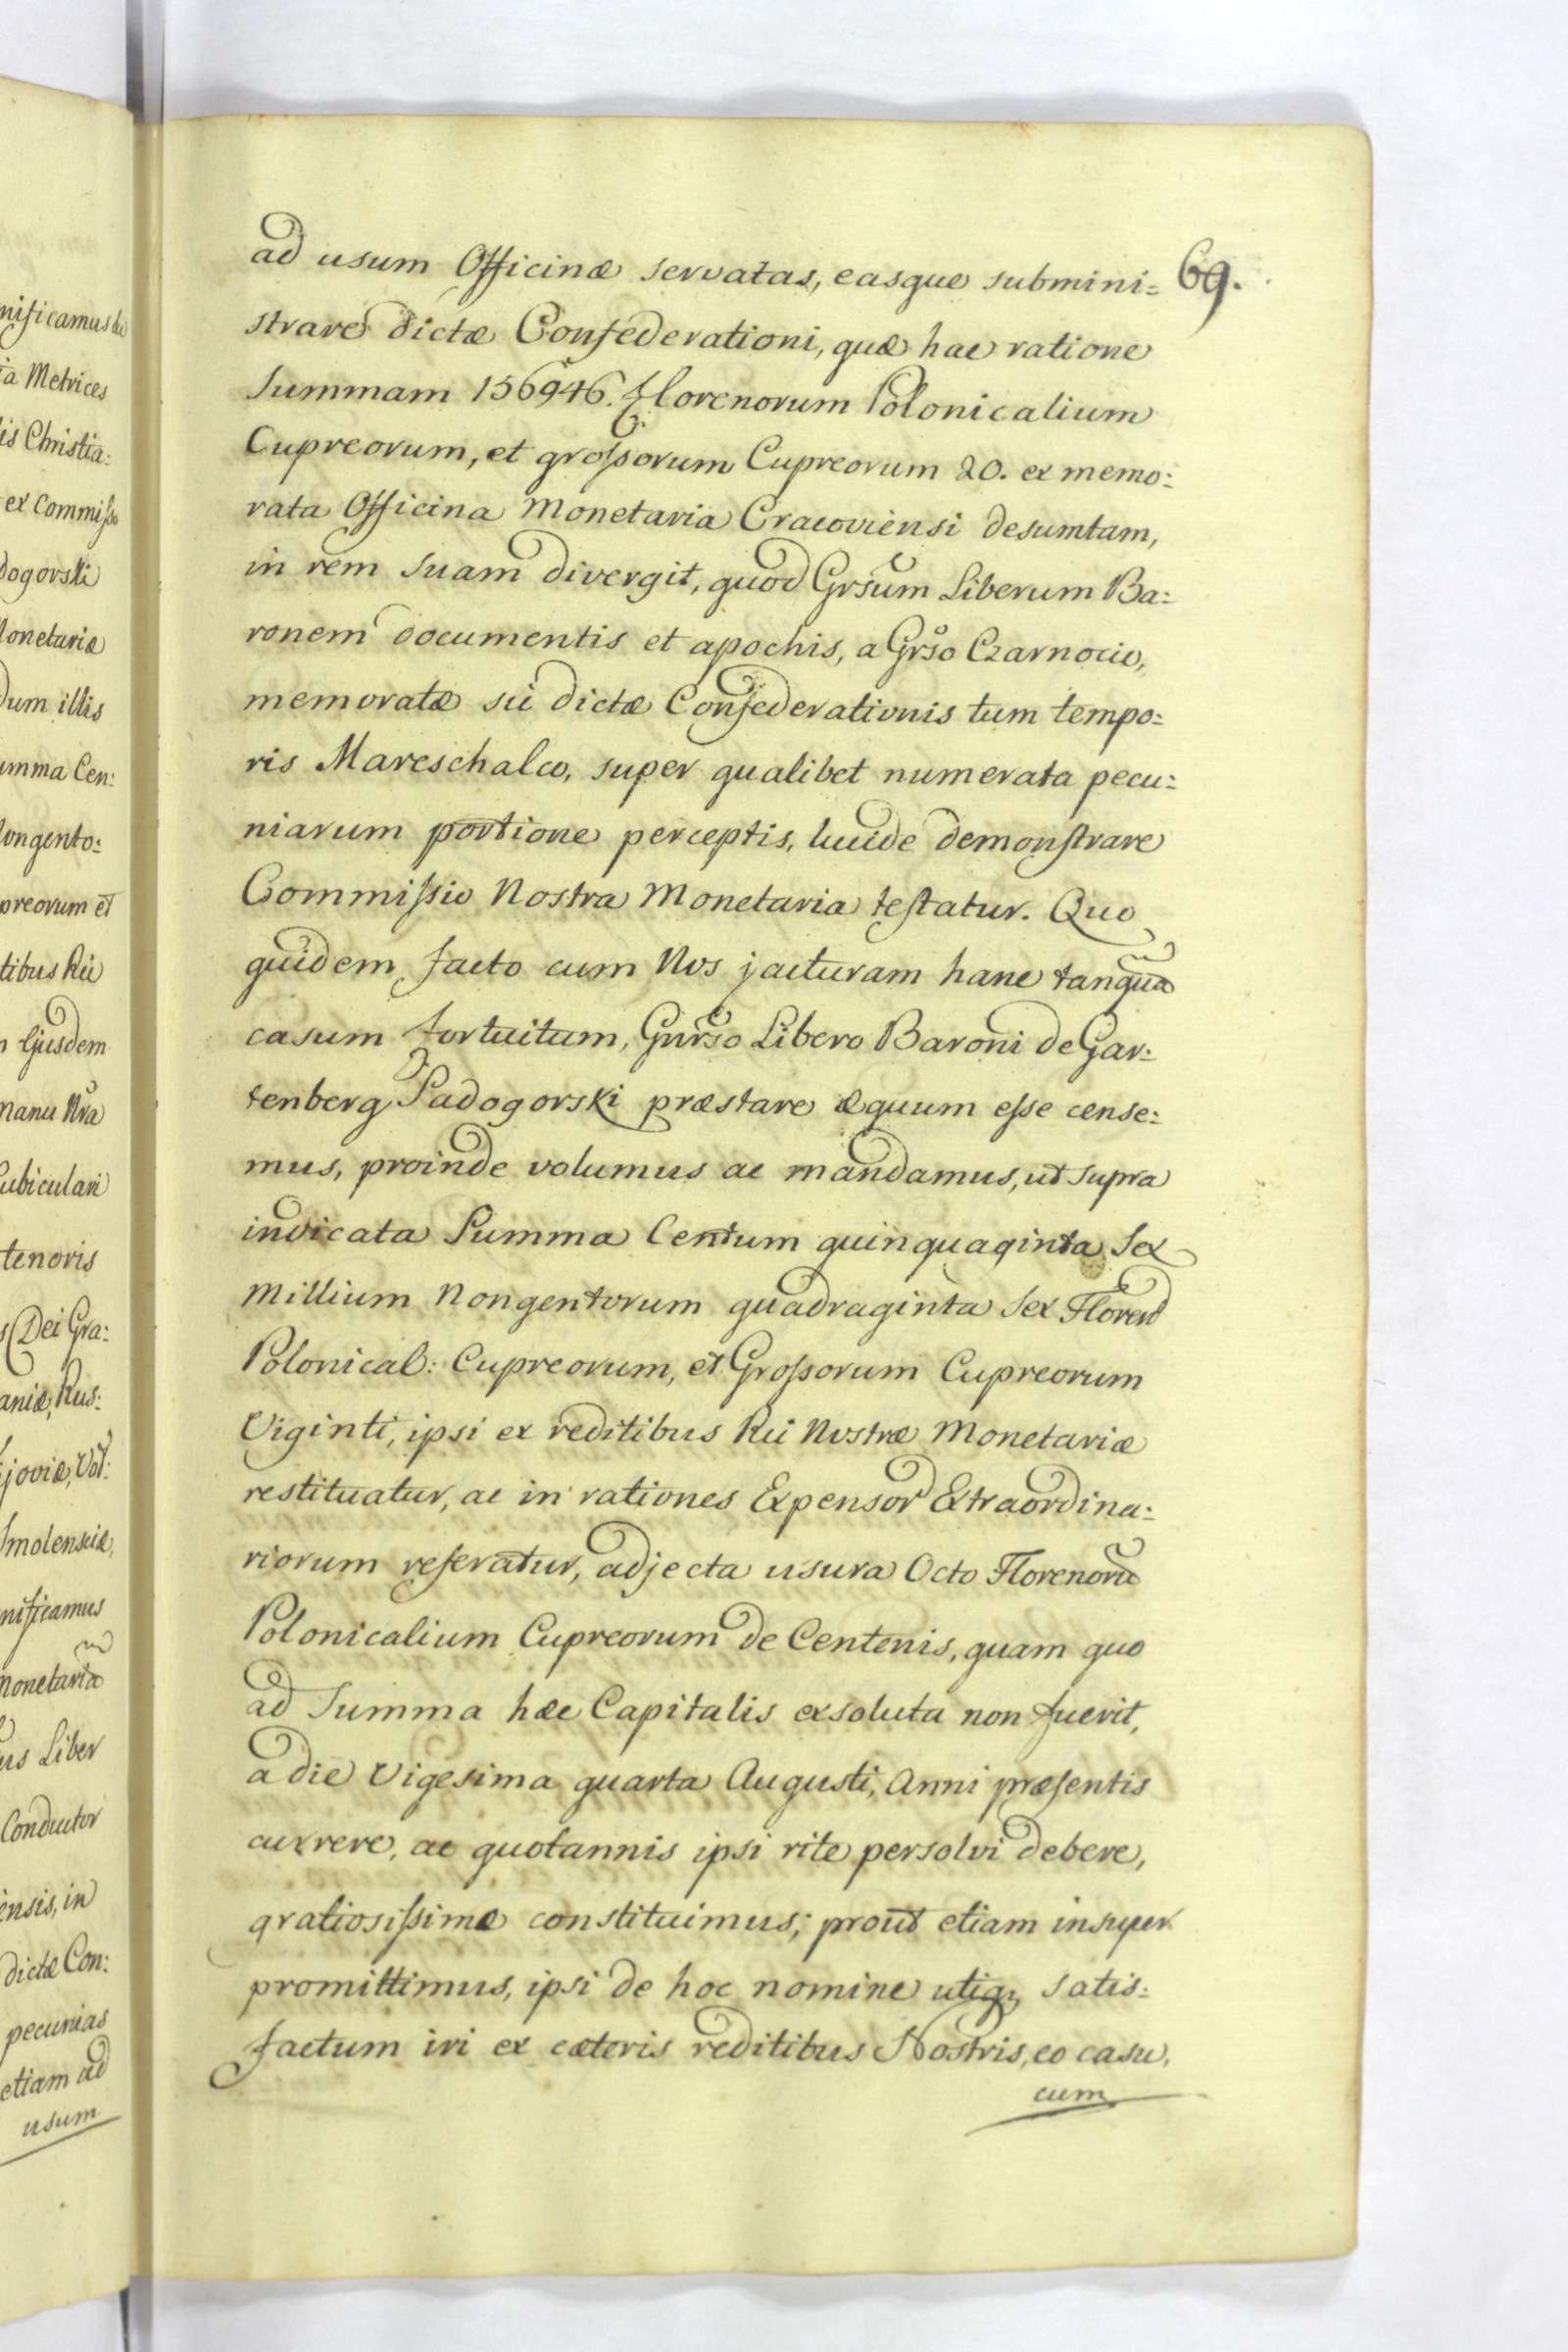 nificamus
ia Metrices
is Christia:
ex Commisso
dogorski
Monetariæ
dum illis
umma Cen:
Nongento:
preorum et
tibus Rei
Ejusdem
manu Nra
Cubiculari
tenoris
Dei Gra:
aniæ, Rus:
ijoviæ, Vol:
Smolensciæ,
nificamus
monetaria
us Liber
Conductor
iensis, in
dictæ Con:
pecunias
etiam ad
usum
69.
ad usum Officinæ servatas, easque submini=
strare dictæ Confederationi, quæ hac ratione
Summam 156946. Florenorum Polonicalium
Cupreorum, et grossorum Cupreorum 20. ex memo:
rata Officina Monetaria Cracoviensi desumtam,
in rem suam divergit, quod Grsum Liberum Ba:
ronem documentis et apochis, a Grso Czarnocio,
memoratæ sic dictæ Confederationis tum tempo:
ris Mareschalco, super qualibet numerata pecu:
niarum portione perceptis, lucide demonstrare
Commissio Nostra Monetaria testatur. Quo
quidem facto cum Nos jacturam hanc tanqua
casum fortuitum, Gnrso Libero Baroni de Gar:
tenberg Sadogorski præstare æquum esse cense:
mus, proinde volumus ac mandamus, ut supra
indicata Summa Centum quinquaginta Sex
Millium Nongentorum quadraginta Sex Floren
Polonical: Cupreorum, et Grossorum Cupreorum
Viginti, ipsi ex reditibus Rei Nostræ Monetariæ
restituatur, ac in rationes Expensor Extraordina:
riorum referatur, adjecta usura Octo Florenoru
Polonicalium Cupreorum de Centenis, quam quo
ad Summa hæc Capitalis exsoluta non fuerit,
a die Vigesima quarta Augusti, Anni præsentis
currere, ac quotannis ipsi rite persolvi debere,
gratiosissime constituimus; prout etiam insuper
promittimus, ipsi de hoc nomine utiq, satis:
factum iri ex cæteris reditibus Nostris, eo casu,
cum